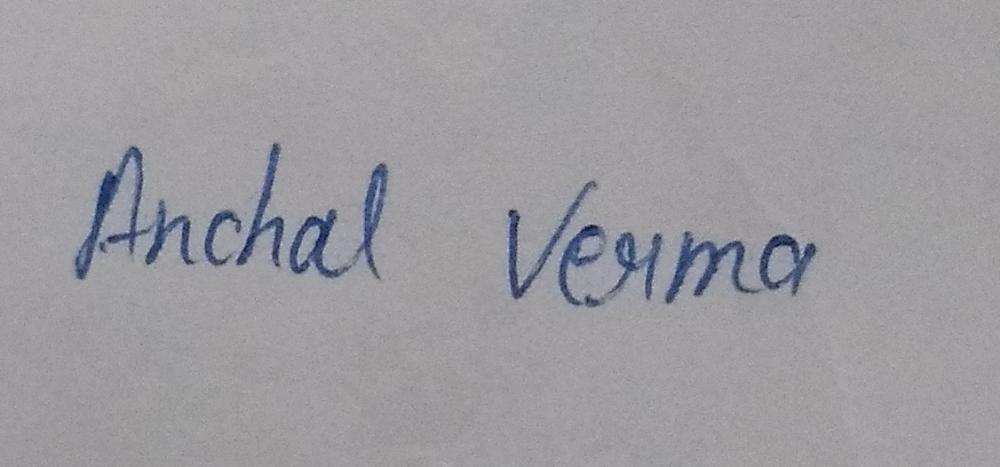 Anchal Verma